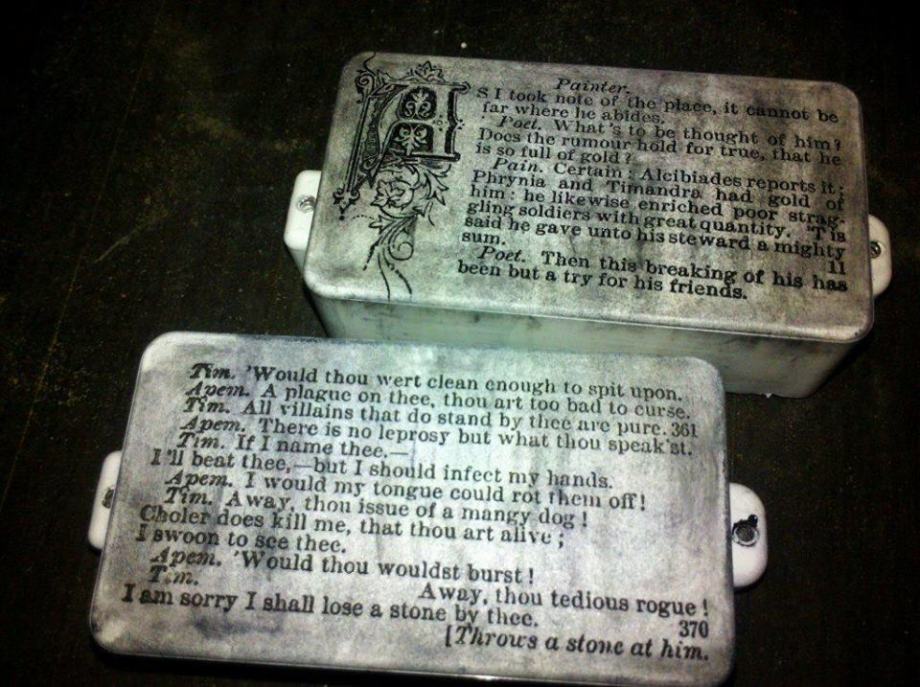 Painter.
AS I took note of the place, it cannot be
far where he abides.
Poet. What's to be thought of him?
Does the rumour hold for true, that he
is so full of gold?
Pain. Certain: Alcibiades reports it;
Phrynia and Timandra had gold of
him: he likewise enriched poor strag-
gling soldiers with great quantity. 'Tis
said he gave unto his steward a mighty
sum. 11
Poet. Then this breaking of his has
been but a try for his friends.
Tim. 'Would thou wert clean enough to spit upon.
Apem. A plague on thee, thou art too bad to curse.
Tim. All villains that do stand by thee are pure. 361
Apem. There is no leprosy but what thou speak'st.
Tim. If I name thee.—
I'll beat thee,—but I should infect my hands.
Apem. I would my tongue could rot them off!
Tim. Away, thou issue of a mangy dog!
Choler does kill me, that thou art alive;
I swoon to see thee.
Apem. 'Would thou wouldst burst!
Tim. Away, thou tedious rogue!
I am sorry I shall lose a stone by thee. 370
[Throws a stone at him.